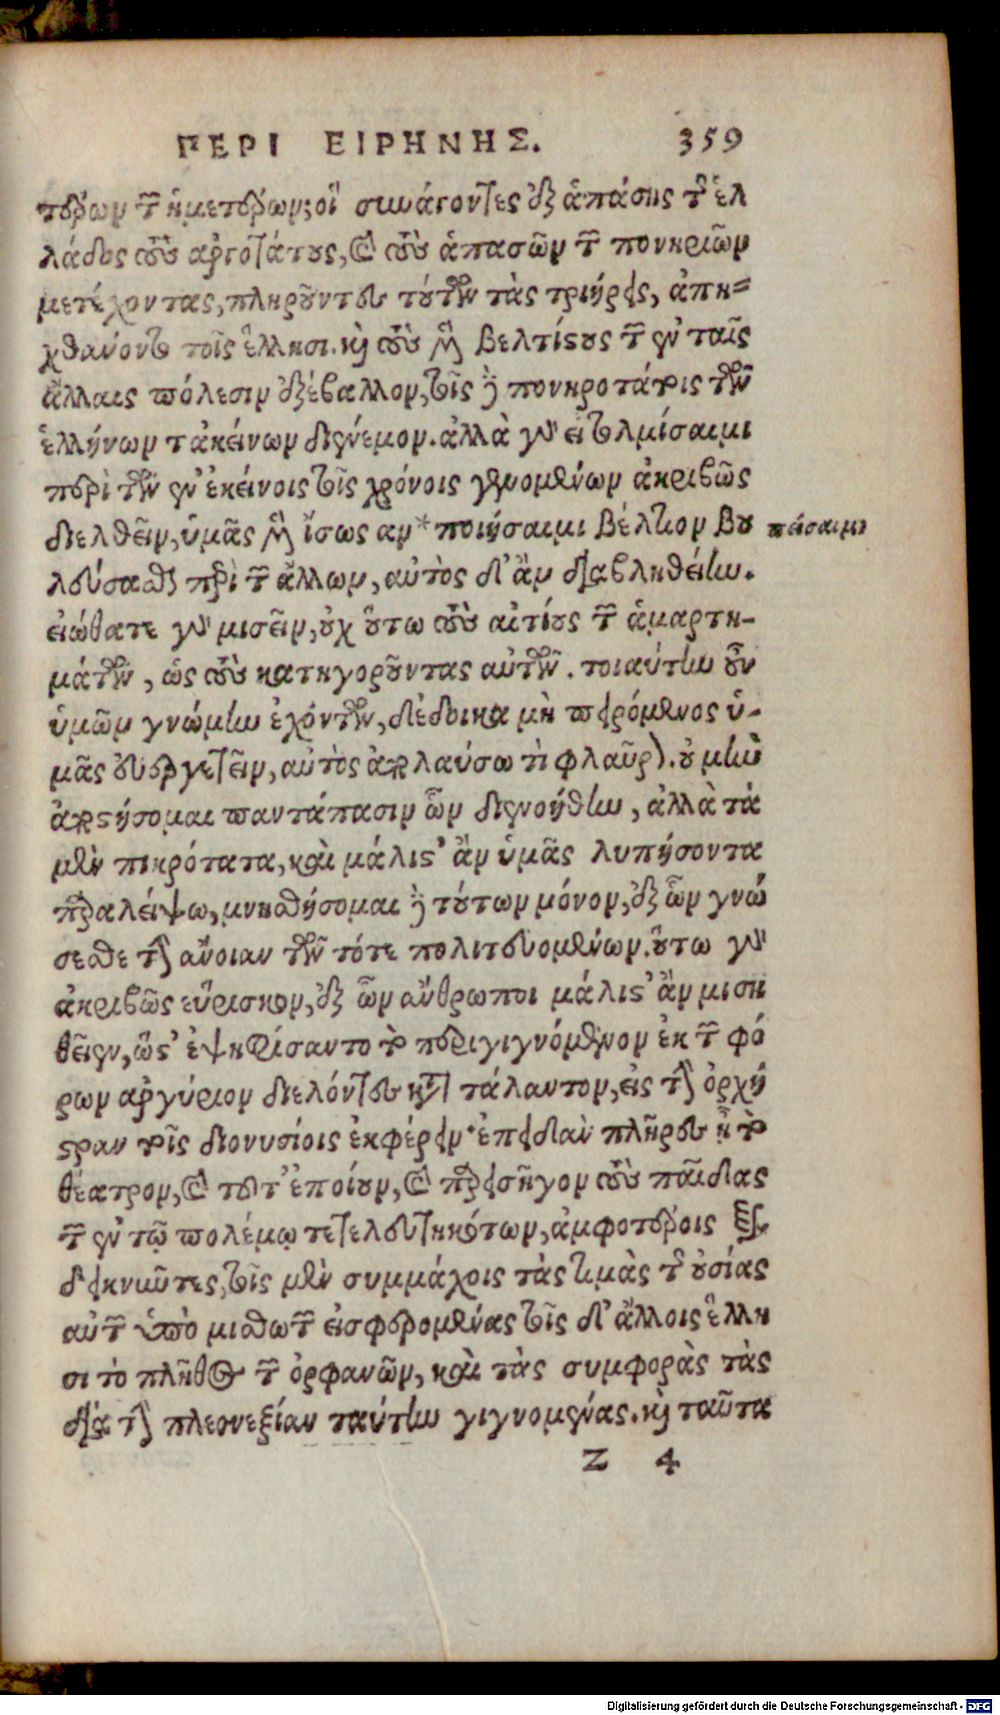 ΠΕΡΙ ΕΙΡΗΝΗΣ. 359
τέρων τῶν ἡμετέρων; οἳ συνάγοντες ἐξ ἁπάσης τῆς ἑλ
λάδος τοὺς ἀργοτάτους, καὶ τοὺς ἁπασῶν τῶν πονηριῶν
μετέχοντας, πληροῦντες τούτων τὰς τριήρεις, ἀπη-
χθάνοντο τοῖς ἕλλησι. καὶ τοὺς μὲν βελτίστους τῶν ἐν ταῖς
ἄλλαις πόλεσιν ἐξέβαλλον, τοῖς δὲ πονηροτάτοις τῶν
ἑλλήνων τἀκείνων διένεμον. ἀλλὰ γὰρ εἰ τολμήσαιμι
περὶ τῶν ἐν ἐκείνοις τοῖς χρόνοις γενομένων ἀκριβῶς
διελθεῖν, ὑμᾶς μὲν ἴσως ἂν * ποιήσαιμι βέλτιον βου
πείσαιμι
λεύσασθαι περὶ τῶν ἄλλων, αὐτὸς δ' ἂν διαβληθείην.
εἰώθατε γὰρ μισεῖν, οὐχ οὕτω τοὺς αἰτίους τῶν ἁμαρτη-
μάτων, ὡς τοὺς κατηγοροῦντας αὐτῶν. τοιαύτην οὖν
ὑμῶν γνώμην ἐχόντων, δέδοικα μὴ πειρόμενος ὑ-
μᾶς εὐεργετεῖν, αὐτὸς ἀπολαύσω τὶ φλαῦρον. οὐ μὴν
ἀποστήσομαι παντάπασιν ὧν διενοήθην, ἀλλὰ τὰ
μὲν πικρότατα, καὶ μάλιστ' ἂν ὑμᾶς λυπήσοντα
παραλείψω, μνησθήσομαι δὲ τούτων μόνον, ἐξ ὧν γνώ
σεσθε τὴν ἄνοιαν τῶν τότε πολιτευομένων. οὕτω γὰρ
ἀκριβῶς εὕρισκον, ἐξ ὧν ἄνθρωποι μάλιστ' ἂν μιση
θεῖεν, ὥστ' ἐψηφίσαντο τὸ περιγιγνόμενον ἐκ τῶν φό
ρων ἀργύριον διελόντες κατὰ τάλαντον, εἰς τὴν ὀρχή
στραν τοῖς διονυσίοις ἐκφέρειν· ἐπειδὰν πλῆρες ᾖ τὸ
θέατρον, καὶ ταῦτ' ἐποίουν, καὶ παρεισῆγον τοὺς παῖδας
τῶν ἐν τῷ πολέμῳ τετελευτηκότων, ἀμφοτέροις ἐπι
δεικνύντες, τοῖς μὲν συμμάχοις τὰς τιμὰς τῆς οὐσίας
αὐτῶν ὑπὸ μισθωτῶν εἰσφερομένας τοῖς δ' ἄλλοις ἕλλη
σι τὸ πλῆθος τῶν ὀρφανῶν, καὶ τὰς συμφορὰς τὰς
διὰ τὴν πλεονεξίαν ταύτην γιγνομένας. καὶ ταῦτα
Z 4
Digitalisierung gefördert durch die Deutsche Forschungsgemeinschaft - DFG